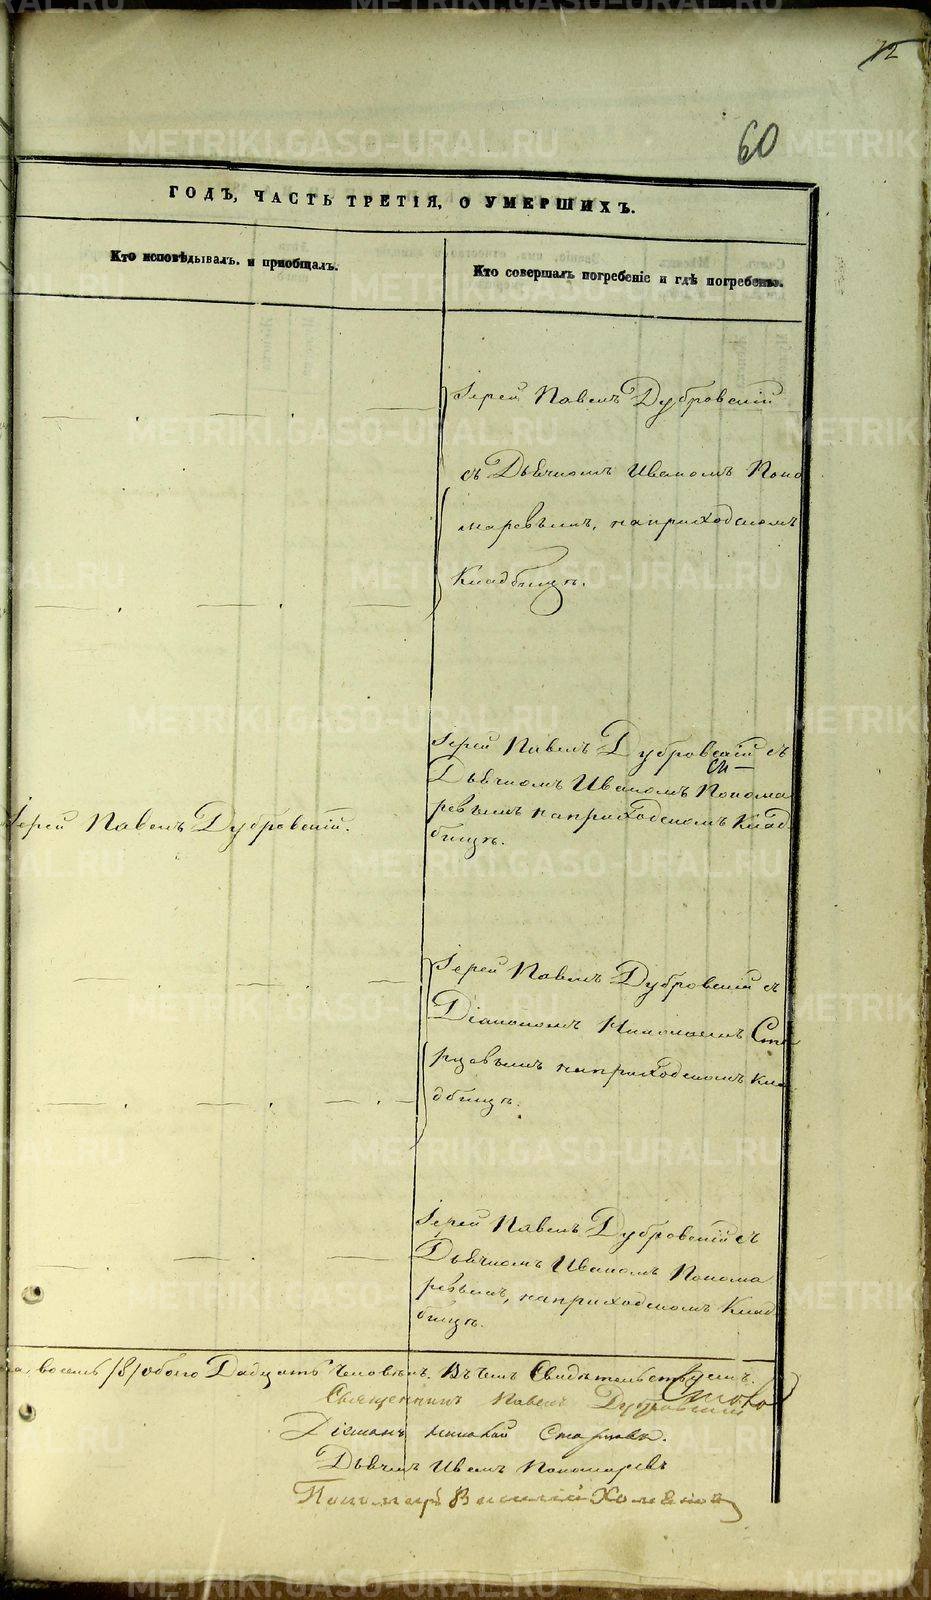 12
60
ГОДЪ, ЧАСТЬ ТРЕТІЯ, О УМЕРШИХЪ.
Кто исповѣдывалъ и пріобщалъ.
Кто совершалъ погребеніе и гдѣ погребенъ.
Іерей Павелъ Дубровскій
съ Дьячкомъ Иваномъ Поно
маревымъ, на приходскомъ
Кладбищѣ.
Іерей Павелъ Дубровскій.
Іерей Павелъ Дубровскій съ
Дьячкомъ Иваномъ Понома
ревымъ на приходскомъ Клад
бищѣ.
Іерей Павелъ Дубровскій съ
Діакономъ Николаемъ Ста
рцовымъ на приходскомъ Кла
дбищѣ.
Іерей Павелъ Дубровскій съ
Дьячкомъ Иваномъ Понома
ревымъ, на приходскомъ Клад
бищѣ.
восемь /8/ обоего Дадцать Человѣкъ. Въ чемъ Свидѣтельствуемъ.
Священникъ Павелъ Дубровскій
Діаконъ Николай Старцовъ.
Дьячекъ Иванъ Пономаревъ
Пономарь Василій
METRIKI.GASO-URAL.RU